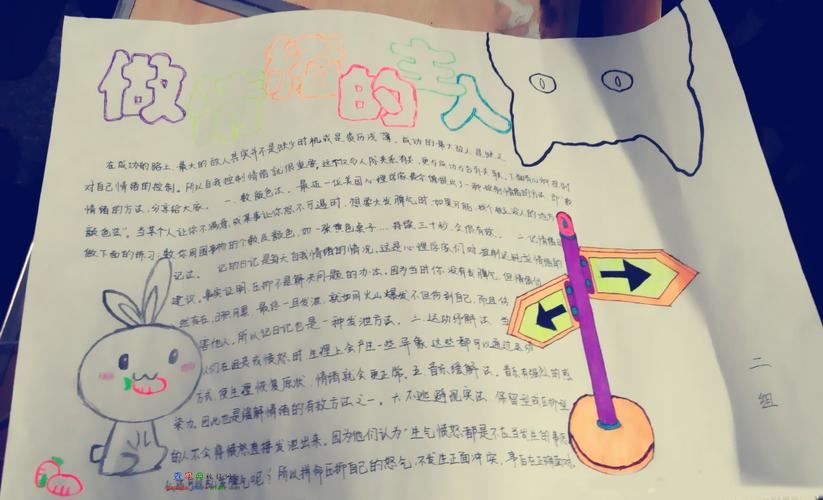 做情绪的主人
在成功的路上,最大的敌人其实并不是缺少时机或是资历浅薄,成功的最大敌人是缺乏
对自己情绪的控制。所以自我控制情绪就很重要。这不仅与人际关系有关,更与成功
情绪的方法,分享给大家。 一、数颜色法。 最近一位美国心理学家费尔德提出了一种控制情绪的方法,即“数
颜色法”。当某个人让你不满意,或某事让你怒不可遏时,想要大发脾气时,如果可能,找个没人的地方
做下面的练习:数你周围事物的个数及颜色,如一张黄色桌子……持续三十秒,会很有效。 二、记情绪日
记法。 记的日记是每天自我情绪的情况,这是心理学家们对控制
建议。事实证明,压抑不是解决问题的办法,因为当时你没有发脾气,但情绪仍
然存在,日积月累,最终一旦发泄,就如同火山爆发不但伤到自己,而且伤
害他人,所以记日记也是一种发泄方法。 三、运动纾解法。 当
人们在遭受或愤怒时生理上会产生一些异象,这些都可以通过运动
方式,使生理恢复原状,情绪就会更正常。五、音乐缓解法。音乐有强烈的感
染力,因此也是缓解情绪的有效方法之一。六、不逃避现实法。保留型或压抑型
的人不会将愤怒直接发泄出来。因为他们认为“生气愤怒都是不应当发生的事
呢?所以拼命压抑自己的怒气,不发生正面冲突,
二组